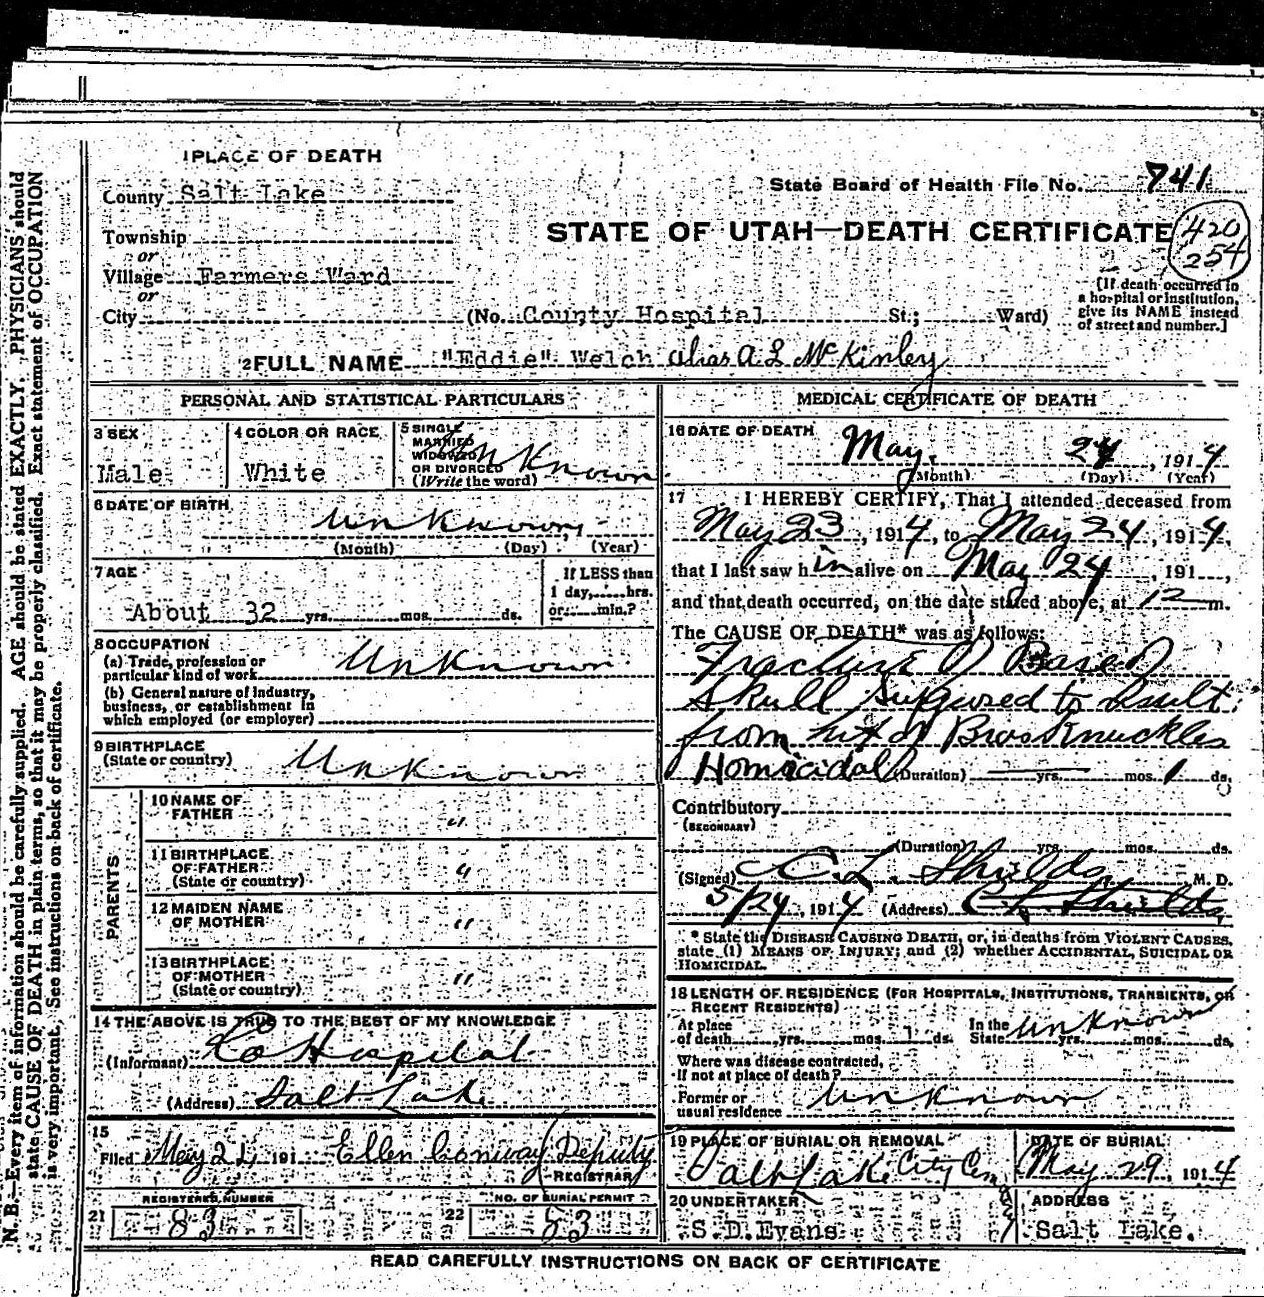 1 PLACE OF DEATH
County Salt Lake
State Board of Health File No. 741
Township
or
STATE OF UTAH—DEATH CERTIFICATE
420
254
Village Farmers Ward
or
City (No. County Hospital St.; Ward)
(If death occurred in
a hospital or institution,
give its NAME instead
of street and number.]
2 FULL NAME "Eddie" Welch alias A L McKinley
PERSONAL AND STATISTICAL PARTICULARS
3 SEX
Male
4 COLOR OR RACE
White
5 SINGLE
MARRIED
WIDOWED
OR DIVORCED
(Write the word)
Unknown
6 DATE OF BIRTH
Unknown
(Month) (Day) (Year)
7 AGE
About 32 yrs. mos. ds.
If LESS than
1 day, hrs.
or min.?
8 OCCUPATION
(a) Trade, profession or
particular kind of work Unknown
(b) General nature of industry,
business, or establishment in
which employed (or employer)
9 BIRTHPLACE
(State or country) Unknown
PARENTS
10 NAME OF
FATHER "
11 BIRTHPLACE
OF FATHER
(State or country) "
12 MAIDEN NAME
OF MOTHER "
13 BIRTHPLACE
OF MOTHER
(State or country) "
14 THE ABOVE IS TRUE TO THE BEST OF MY KNOWLEDGE
(Informant) Co Hospital
(Address) Salt Lake
15
Filed May 24, 191 Ellen Conway Deputy
REGISTRAR
REGISTERED NUMBER
21 83
NO. OF BURIAL PERMIT
22 83
MEDICAL CERTIFICATE OF DEATH
16 DATE OF DEATH
May 24, 1914
(Month) (Day) (Year)
17 I HEREBY CERTIFY, That I attended deceased from
May 23, 1914, to May 24, 1914,
that I last saw him alive on May 24, 191 ,
and that death occurred, on the date stated above, at 12 m.
The CAUSE OF DEATH* was as follows:
Fracture of Base of
Skull
from hit of Brass Knuckles
Homicidal (Duration) yrs. mos. 1 ds.
Contributory
(SECONDARY)
(Duration) yrs. mos. ds.
(Signed) C. L. Shields M. D.
5/24, 1914 (Address) C L Shields
* State the DISEASE CAUSING DEATH, or, in deaths from VIOLENT CAUSES,
state (1) MEANS OF INJURY; and (2) whether ACCIDENTAL, SUICIDAL OR
HOMICIDAL.
18 LENGTH OF RESIDENCE (FOR HOSPITALS, INSTITUTIONS, TRANSIENTS, OR
RECENT RESIDENTS)
At place
of death yrs. mos. 1 ds.
In the
State Unknown yrs. mos. ds.
Where was disease contracted,
if not at place of death?
Former or
usual residence Unknown
19 PLACE OF BURIAL OR REMOVAL
Salt Lake City Cem
DATE OF BURIAL
May 29, 1914
20 UNDERTAKER
S.D.Evans
ADDRESS
Salt Lake.
READ CAREFULLY INSTRUCTIONS ON BACK OF CERTIFICATE
N. B.—Every item of information should be carefully supplied. AGE should be stated EXACTLY. PHYSICIANS should
state CAUSE OF DEATH in plain terms, so that it may be properly classified. Exact statement of OCCUPATION
is very important. See instructions on back of certificate.